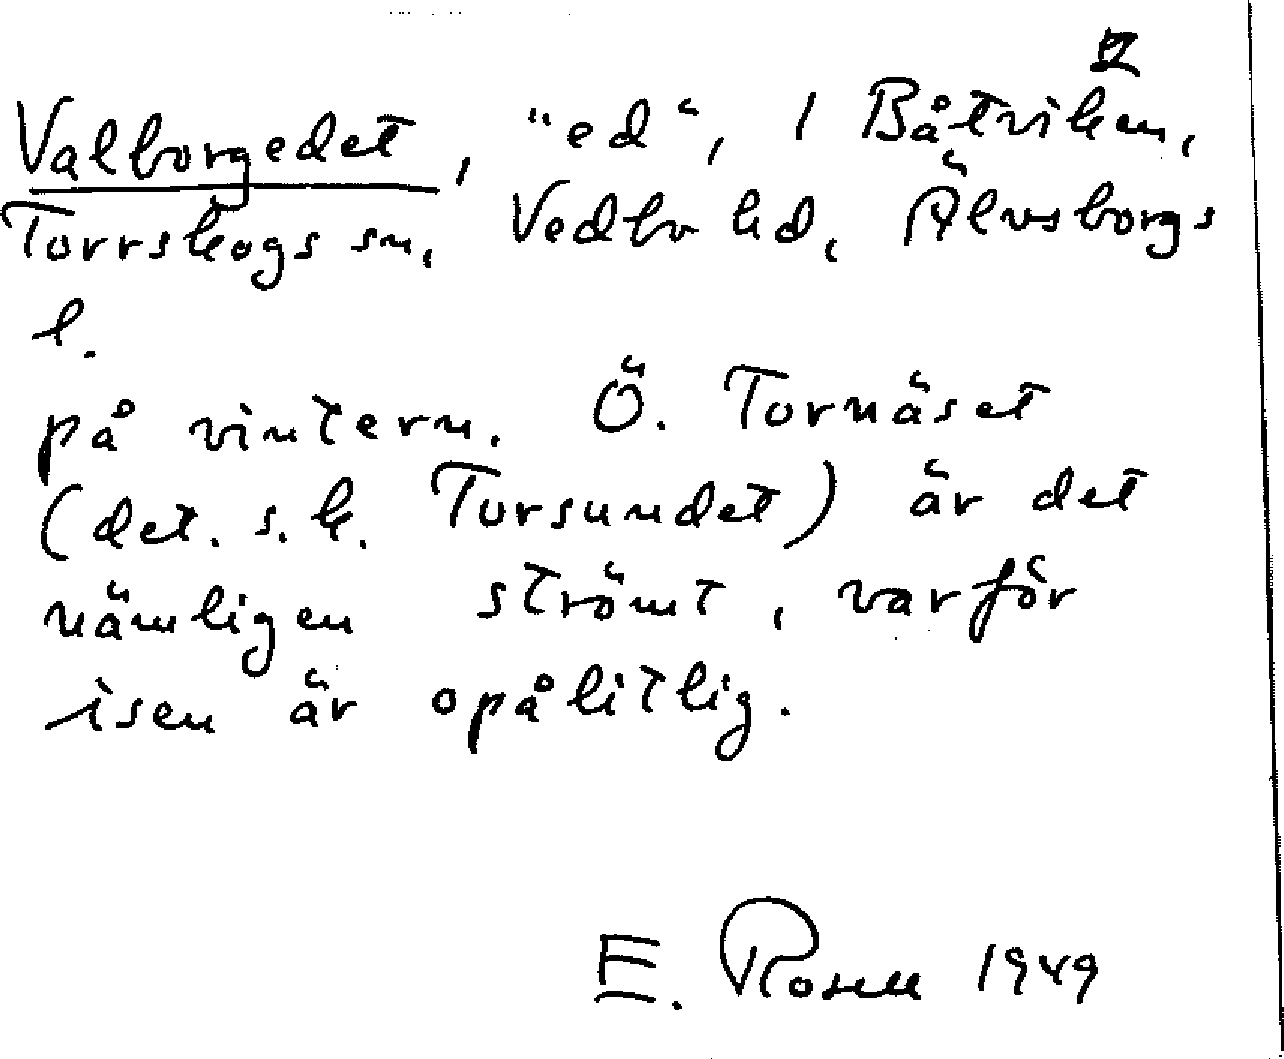 II
Valborgedet, "ed", 1 Båtviken,
Torrskogs sn, Vedbo hd, Älvsborgs
l.
på vintern. Ö. Tornäset
(det. s.k. Torsundet) är det
nämligen strömt, varför
isen är opålitlig.
E. Rosell 1949